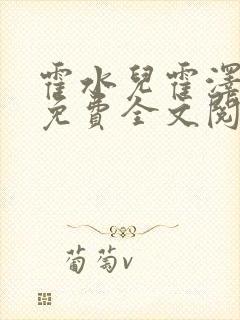 霍水兒霍澤
免費全文閱
葡萄v